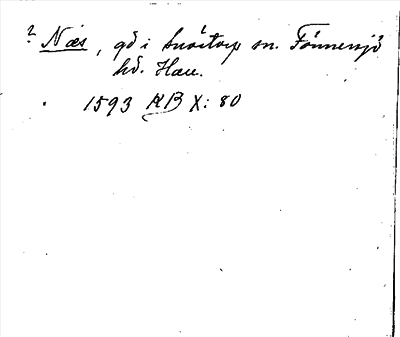 ? Næs, gd i Knäred sn. Tönnersjö
hd. Hall.
1593 KB X: 80